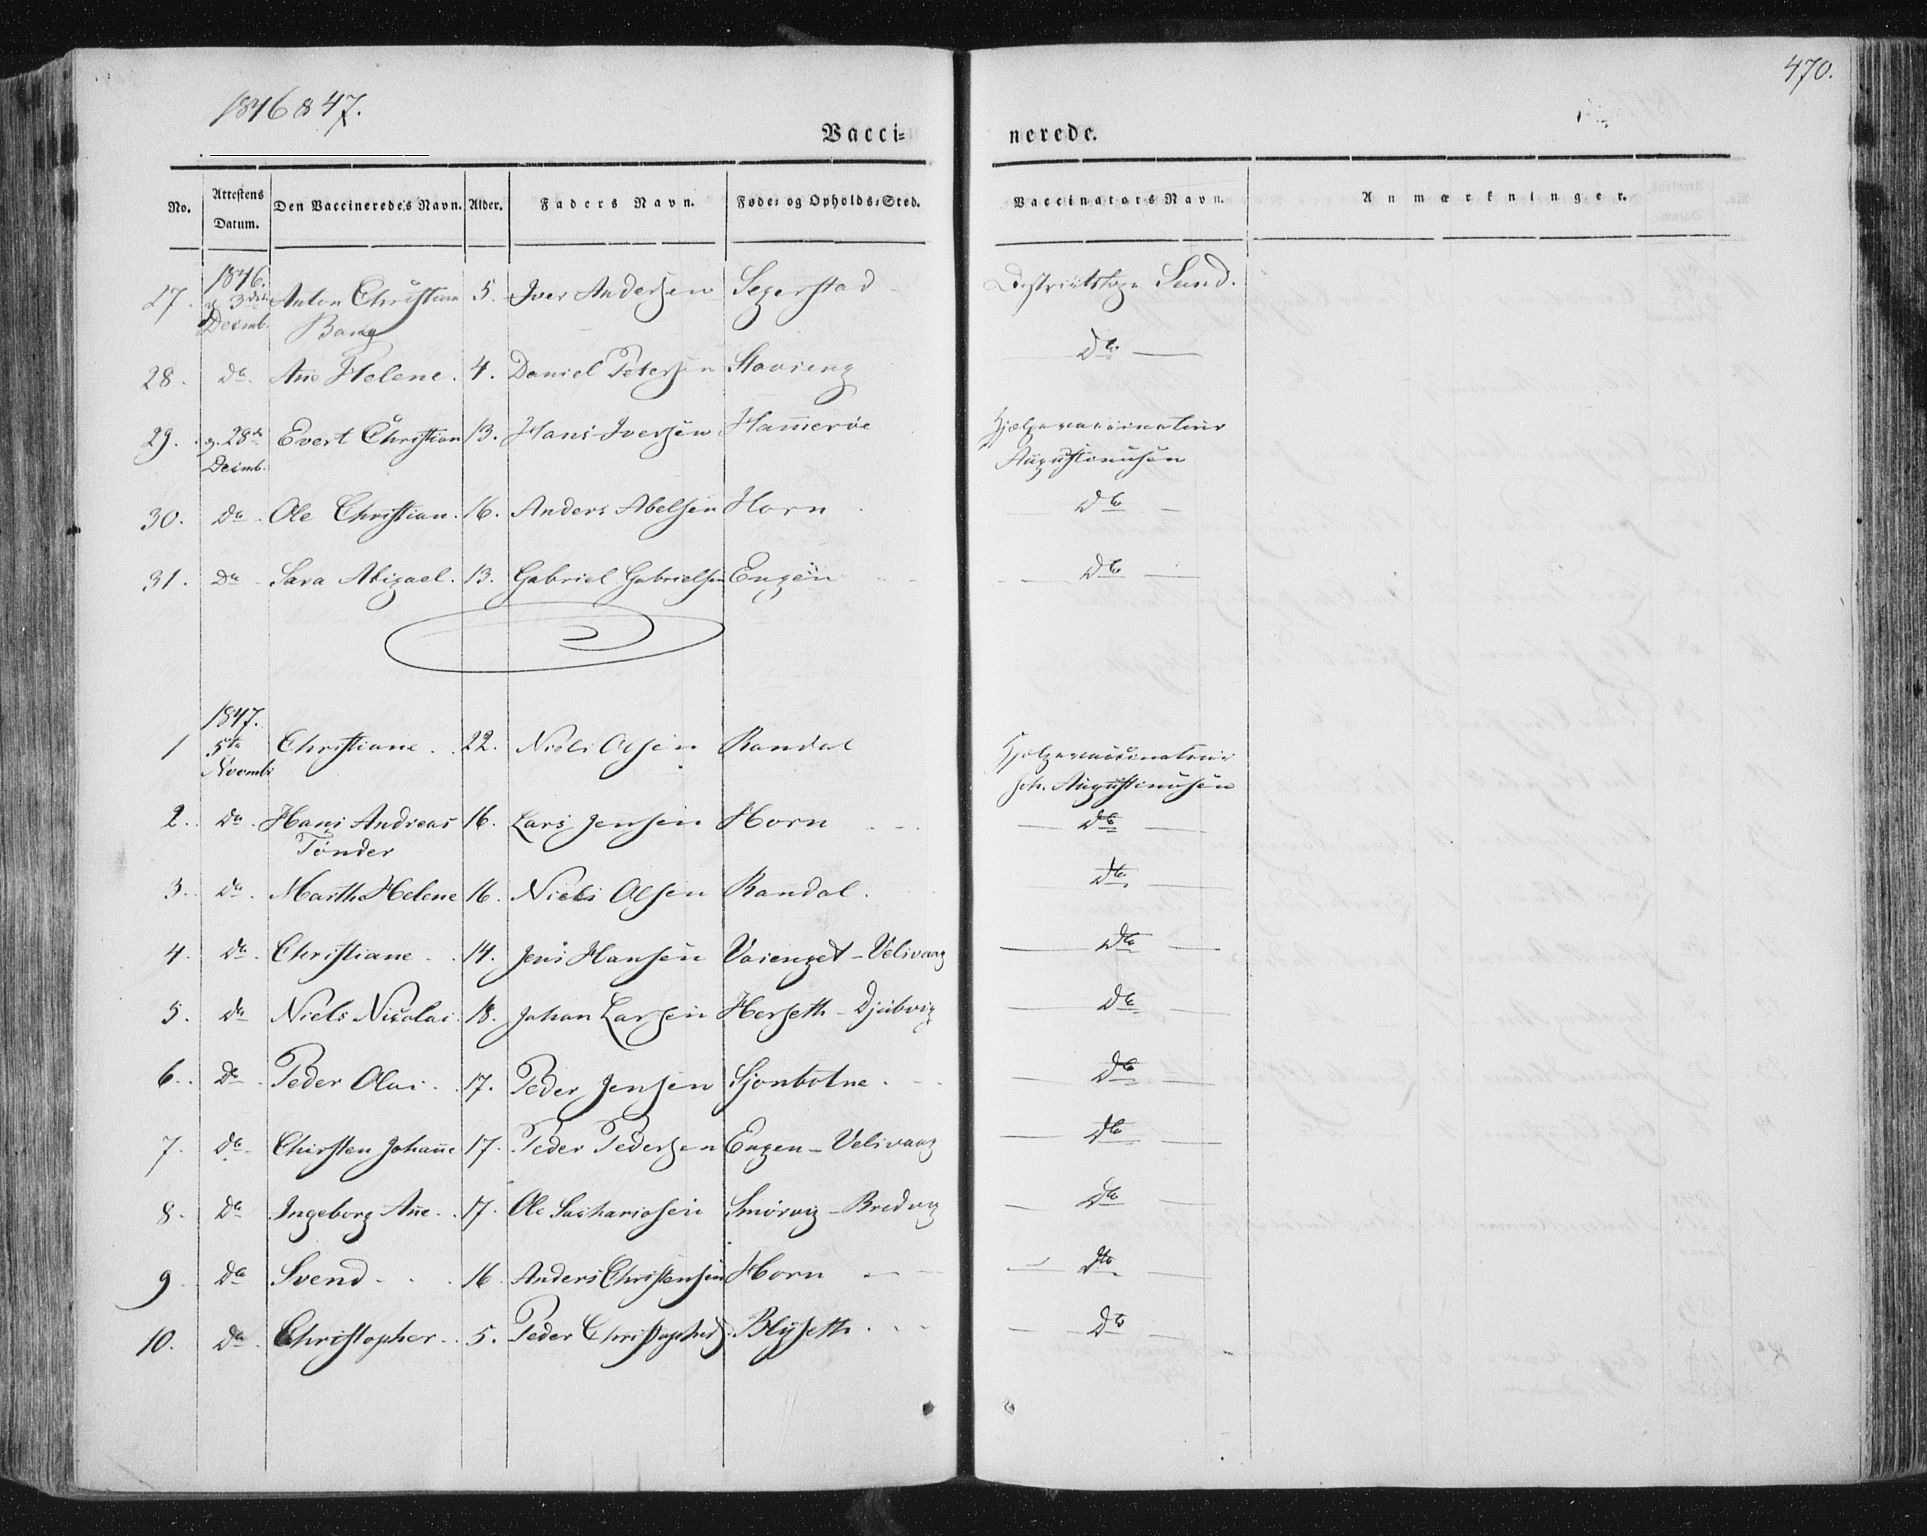 1846 & 47.
470.
Vacci=nerede.
No. Attestens Datum. Den Vaccineredes Navn. Alder. Faders Navn. Føde= og Opholds=Sted. Vaccinators Navn. Anmærkninger.
1846.
27. 3die Decmb. Anton Christian Bang 5. Iver Andersen Segerstad Districtslæge Lund.
28. Do Ane Helene. 4. Daniel Petersen Stavseng Do
29. 28de Decmb. Evert Christian 13. Hans Iversen Hamerøe Hjelpevaccinateur Augustinusen
30. Do Ole Christian. 16. Anders Abelsen Horn Do
31. Do Sara Abigael. 13. Gabriel Gabrielsen Engen Do
1847.
1 5te Novmb. Christiane 22. Niels Olsen Randal Hjelpevaccinateur Joh. Augustinusen
2. Do Hans Andreas Tønder 16. Lars Jensen Horn Do
3. Do Marth Helene 16. Niels Olsen Randal. Do
4. Do Christiane 14. Jens Hansen Vaienget - Velivaag Do
5. Do Niels Nicolai 18. Johan Larsen Herseth - Djubvig Do
6. Do Peder Olai 17. Peder Jensen Sjonbotne. Do
7. Do Chirsten Johane 17. Peder Pedersen Engen - Velivaag Do
8. Do Ingeborg Ane 17. Ole Sachariasen Smørvig - Bredvig Do
9. Do Svend 16. Anders Christensen Horn Do
10. Do Christopher 5. Peder Christophers. Blyseth. Do